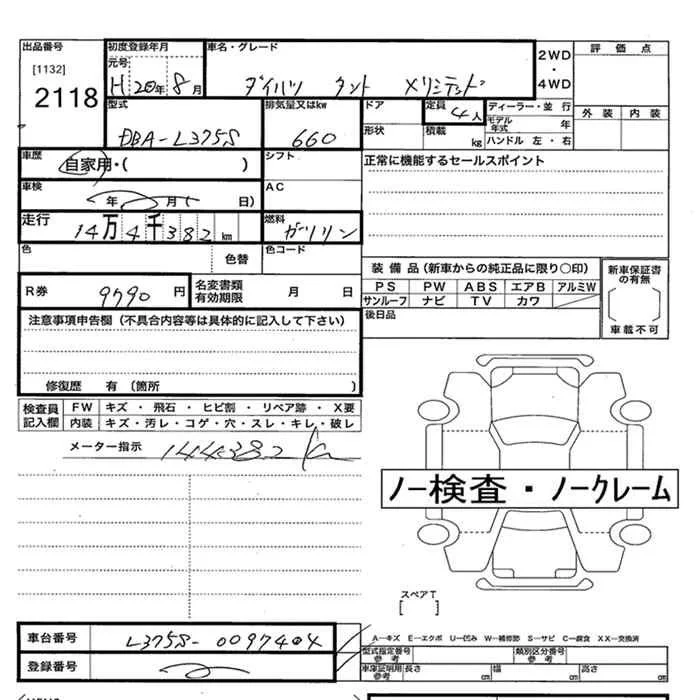 出品番号 初度登録年月 車名・グレード 2WD・4WD 評価点
[1132] 元号
2118 H 20年 8月 ダイハツ タント メリミテッド
型式 排気量又はkw ドア 定員 ディーラー・並行 外装 内装
DBA-L375S 660 4人 モデル年式 年
形状 積載 kg ハンドル 左・右
車歴 自家用・( ) シフト 正常に機能するセールスポイント
車検 年 月( 日) AC
走行 14万4千382km 燃料 ガソリン
色 色替 色コード
装備品(新車からの純正品に限り〇印) 新車保証書の有無
R券 9790円 名変書類有効期限 月 日 PS PW ABS エアB アルミW
サンルーフ ナビ TV カワ
注意事項申告欄(不具合内容等は具体的に記入して下さい) 後日品 車載不可
修復歴 有(箇所 )
検査員記入欄 FW キズ・飛石・ヒビ割・リペア跡・X要
内装 キズ・汚レ・コゲ・穴・スレ・キレ・破レ
メーター指示 144382km
ノー検査・ノークレーム
スペアT
[ ]
車台番号 L375S-0097404 A―キズ E―エクボ U―凹み W―補修跡 S―サビ C―腐食 XX―交換済
型式指定番号参考 類別区分番号参考
登録番号 車庫証明用参考 長さ cm 幅 cm 高さ cm